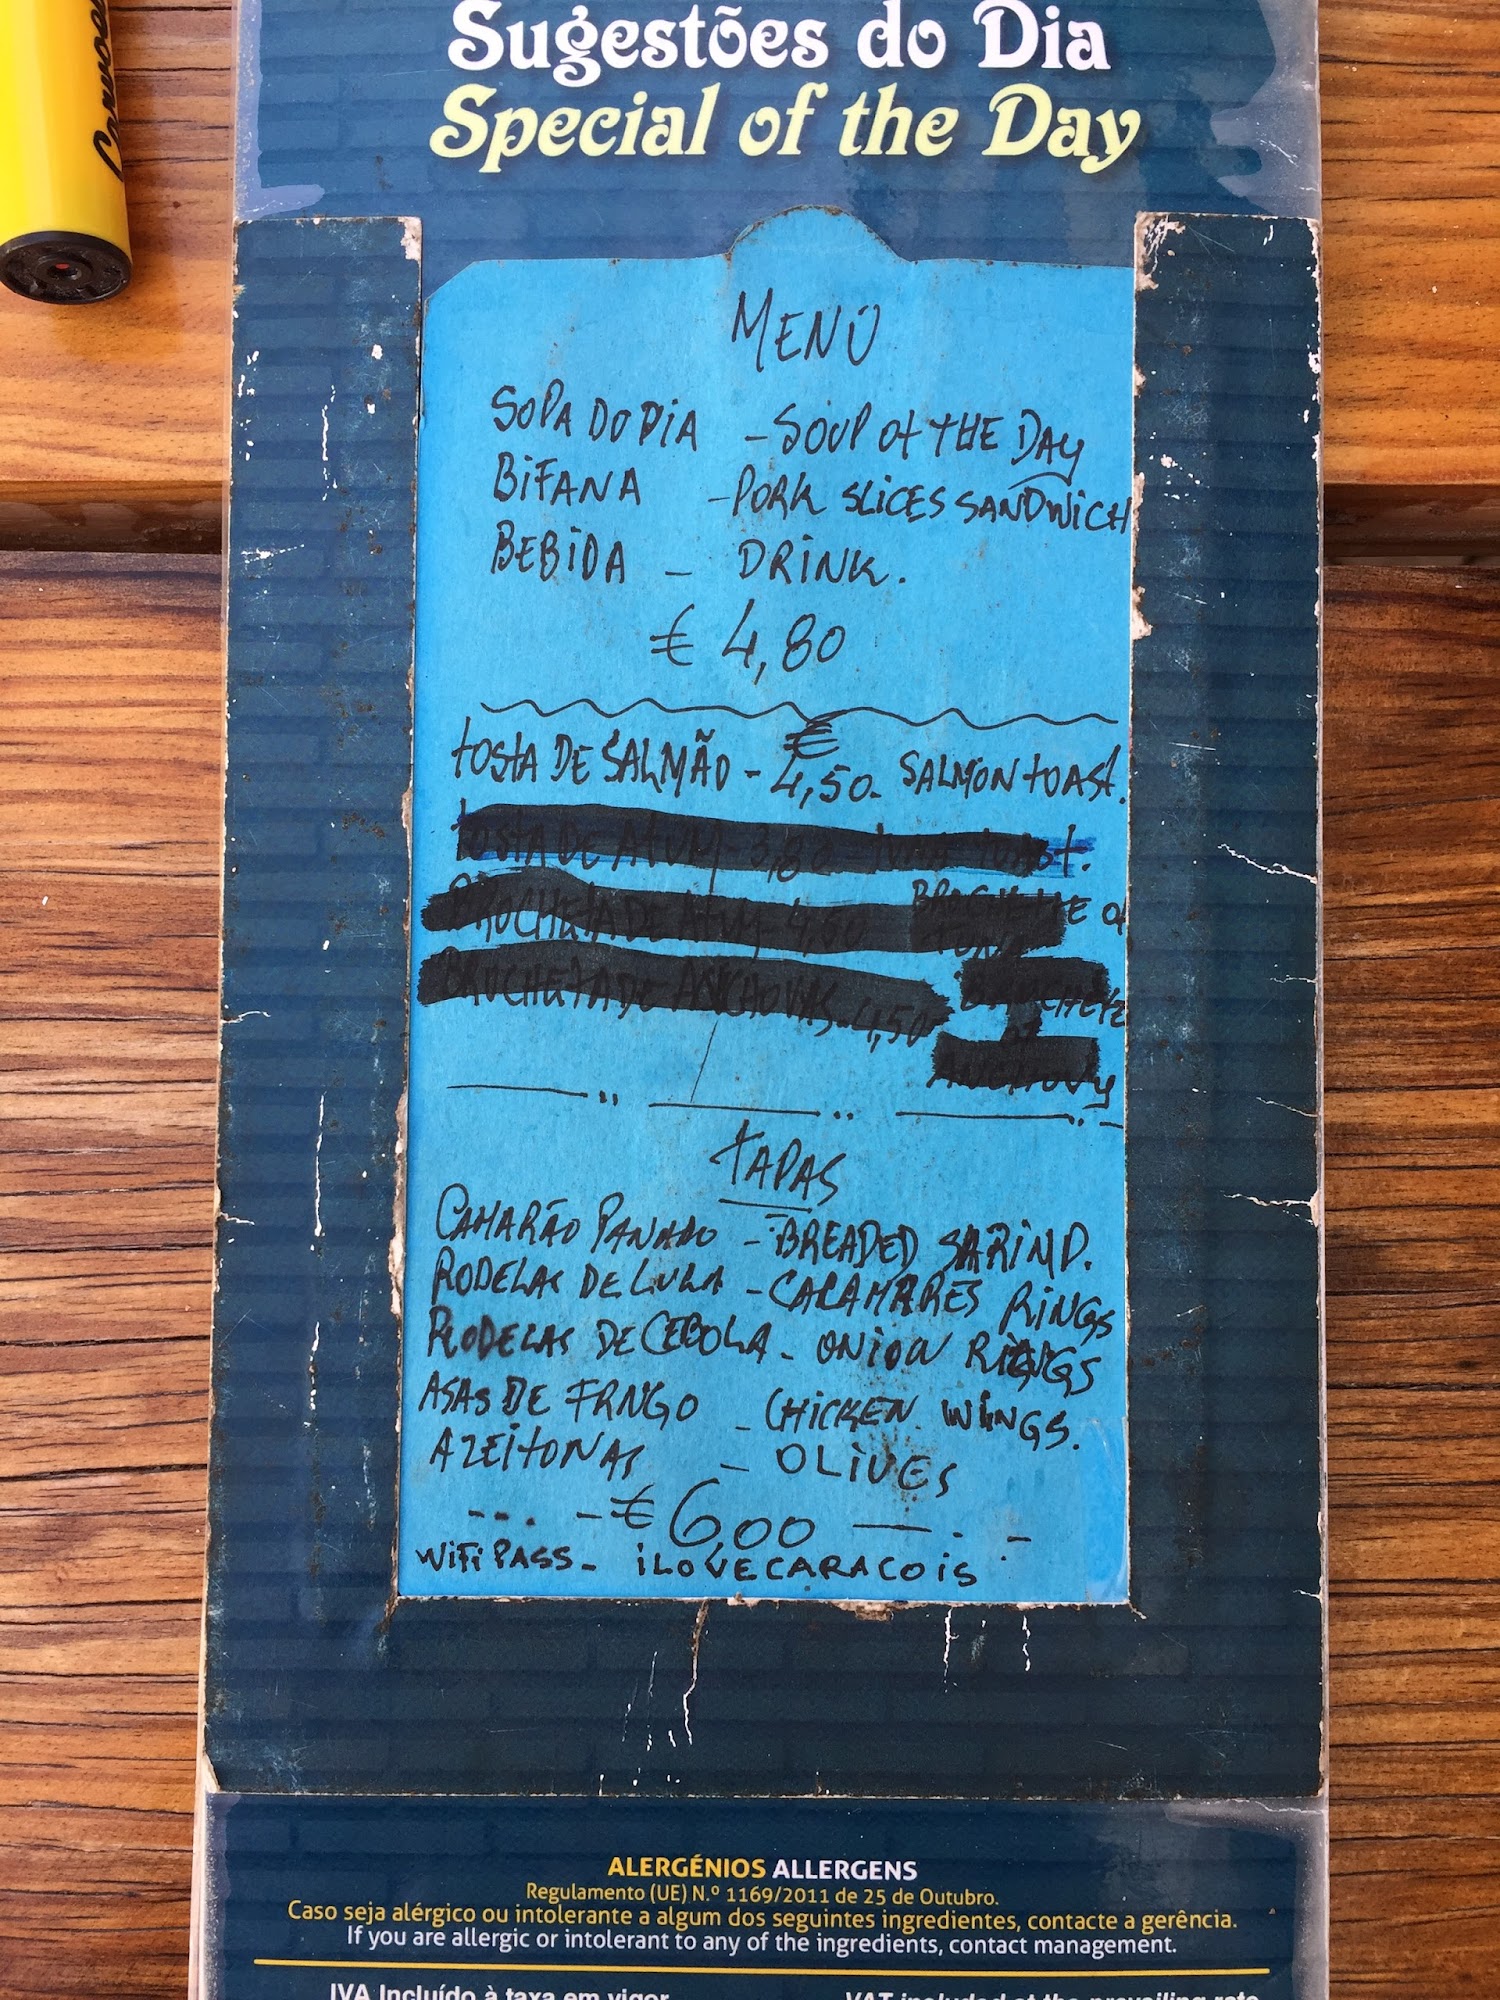 Sugestões do Dia
Special of the Day
MENU
SOPA DO DIA - SOUP OF THE DAY
BIFANA - PORK SLICES SANDWICH
BEBIDA - DRINK.
€ 4,80
TOSTA DE SALMÃO - € 4,50. SALMON TOAST.
TOSTA DE ATUM - 3,80 TUNA TOAST.
BRUCHETA DE ATUM - 4,50 BRUCHETTE OF
TUNA
BRUCHETA DE ANCHOVAS - 4,50 BRUCHETE
OF
ANCHOVY
TAPAS
CAMARÃO PANADO - BREADED SARIMP.
RODELAS DE LULA - CALAMARES RINGS
RODELAS DE CEBOLA - ONION RINGS
ASAS DE FRNGO - CHICKEN WINGS.
AZEITONAS - OLIVES
€ 6,00
WIFI PASS - ILOVECARACOIS
ALERGÉNIOS ALLERGENS
Regulamento (UE) N.º 1169/2011 de 25 de Outubro.
Caso seja alérgico ou intolerante a algum dos seguintes ingredientes, contacte a gerência.
If you are allergic or intolerant to any of the ingredients, contact management.
IVA Incluído à taxa em vigor VAT included at the prevailing rate